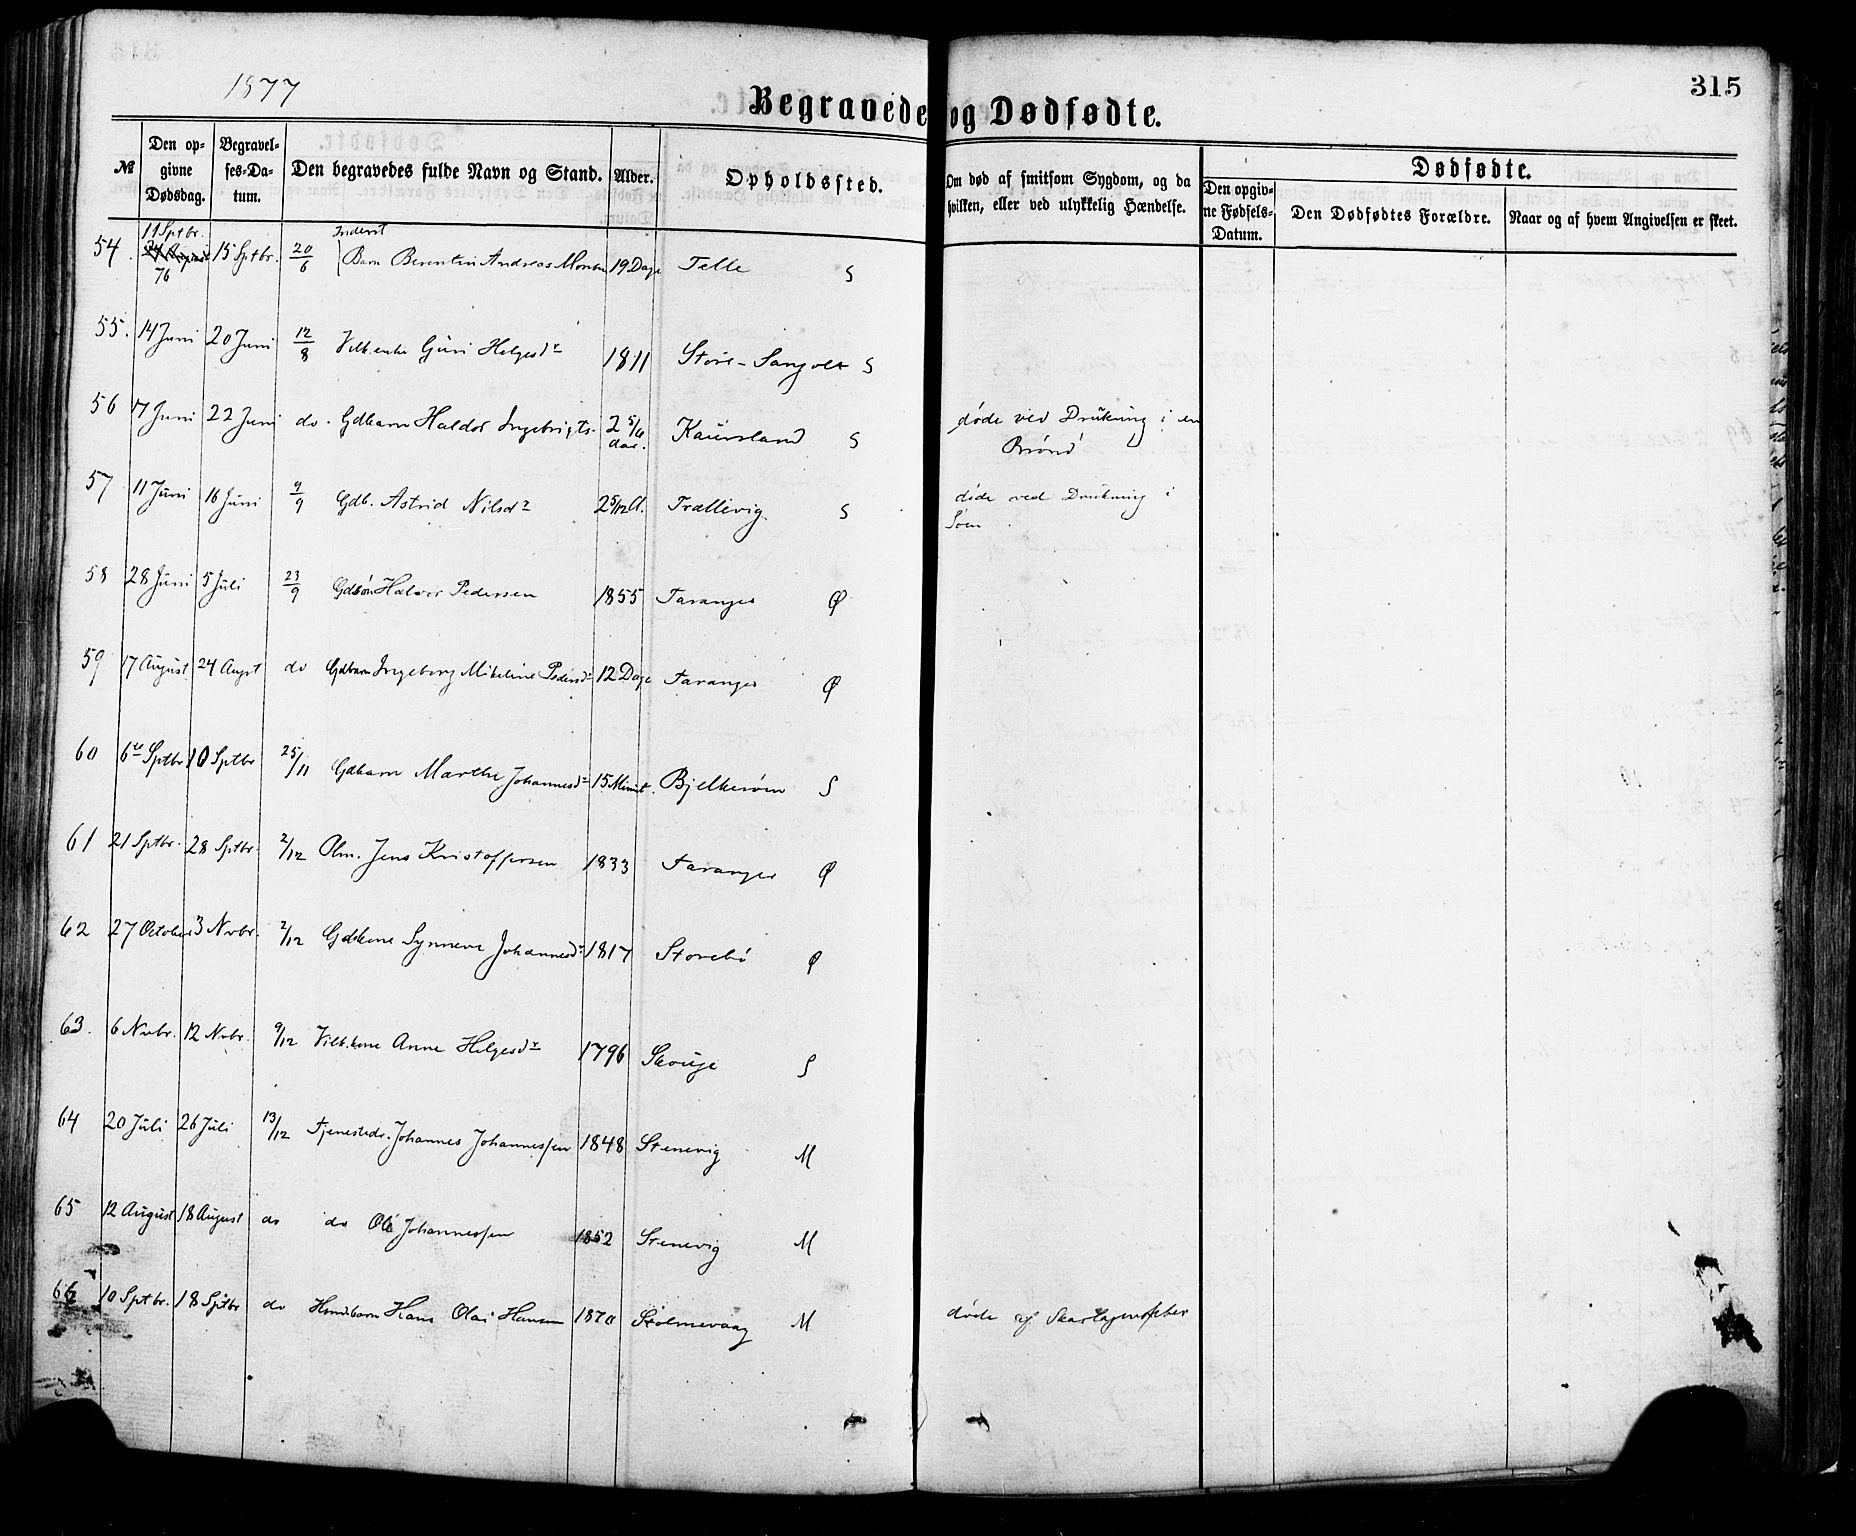 315
1877
Begravede og Dødfødte.
№ Den opgivne Dødsdag. Begravelses-Datum. Den begravedes fulde Navn og Stand. Alder. Opholdssted. Om død af smitsom Sygdom, og da hvilken, eller ved ulykkelig Hændelse. Dødfødte. Den opgivne Fødsels-Datum. Den Dødfødtes Forældre. Naar og af hvem Angivelsen er skeet.
11 Sptbr.
54. 76 15 Sptbr. 20/6 Barn Berentin Andreas 19 Dage Telle S
55. 14 Juni 20 Juni 12/8 Vilk.enke Guri Helgesdr 1811 Store- S
56 17 Juni 22 Juni do. Gdbarn Haldor Ingebrigts. 2 5/6 Kaursland S døde ved Drukning i en
Brønd
57 11 Juni 16 Juni 9/9 Gdb. Astrid Nilsdr 2 5/12 A. Trællevig. S døde ved Drukning i
Søen
58 28 Juni 5 Juli 23/9 Gdsøn Halvor Pedersen 1855 Taranger Ø
59 17 August 24 Augst do Gdbarn Ingeborg Mikeline Pedersdr 12 Dage Taranger Ø
60 6te Sptbr 10 Sptbr 25/11 Gdbarn Marthe Johannesdr 15 Minut. Bjelkerøen S
61 21 Sptbr. 28 Sptbr. 2/12 Olm. Jens Kristoffersen 1833 Taranger Ø
62 27 October 3 Nvbr. 2/12 Gdkone Synneve Johannesdr 1817 Storebø Ø
63. 6 Nvbr. 12 Nvbr. 9/12 Vilk.kone Anne Helgesdr 1796 Skouge S
64 20 Juli 26 Juli 13/12 Tjenestedr. Johannes Johannessen 1848 Stenevig M
65 12 August 18 August do do Ole Johannessen 1852 Stenevig M
66 10 Sptbr. 18 Sptbr do Hmdsbarn Hans Olai Hansen 1870 Stolmevaag M døde af Skarlagensfeber